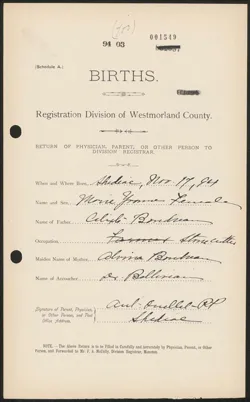 94 05
001549
(Schedule A.)
BIRTHS.
Registration Division of Westmorland County.
RETURN OF PHYSICIAN, PARENT, OR OTHER PERSON TO
DIVISION REGISTRAR.
When and Where Born, Shediac, Nov 17, 94
Name and Sex, Marie Yvonne Female
Name of Father, Boudreau
Occupation, Stonecutter
Maiden Name of Mother, Boudreau
Name of Accoucher, Dr Belliveau
Signature of Parent, Physician,
or Other Person, and Post
Office Address.
Ant. Ouellet Pt
Shediac
NOTE.—The Above Return is to be Filled in Carefully and Accurately by Physician, Parent, or Other
Person, and Forwarded to Division Registrar, Moncton.